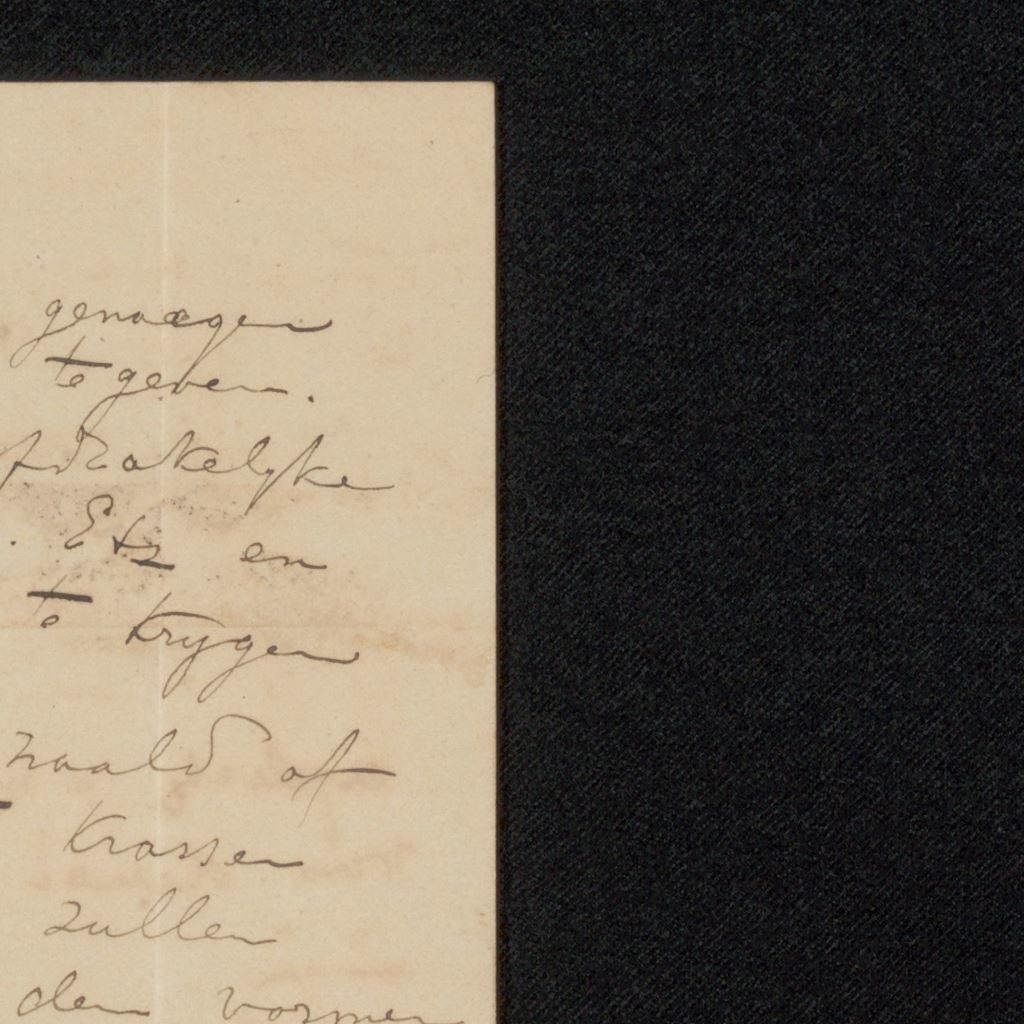 genoegen
te geven.
afdrakelyke
. Etz en
te Krygen
naald of
Krassen
zullen
den vormen